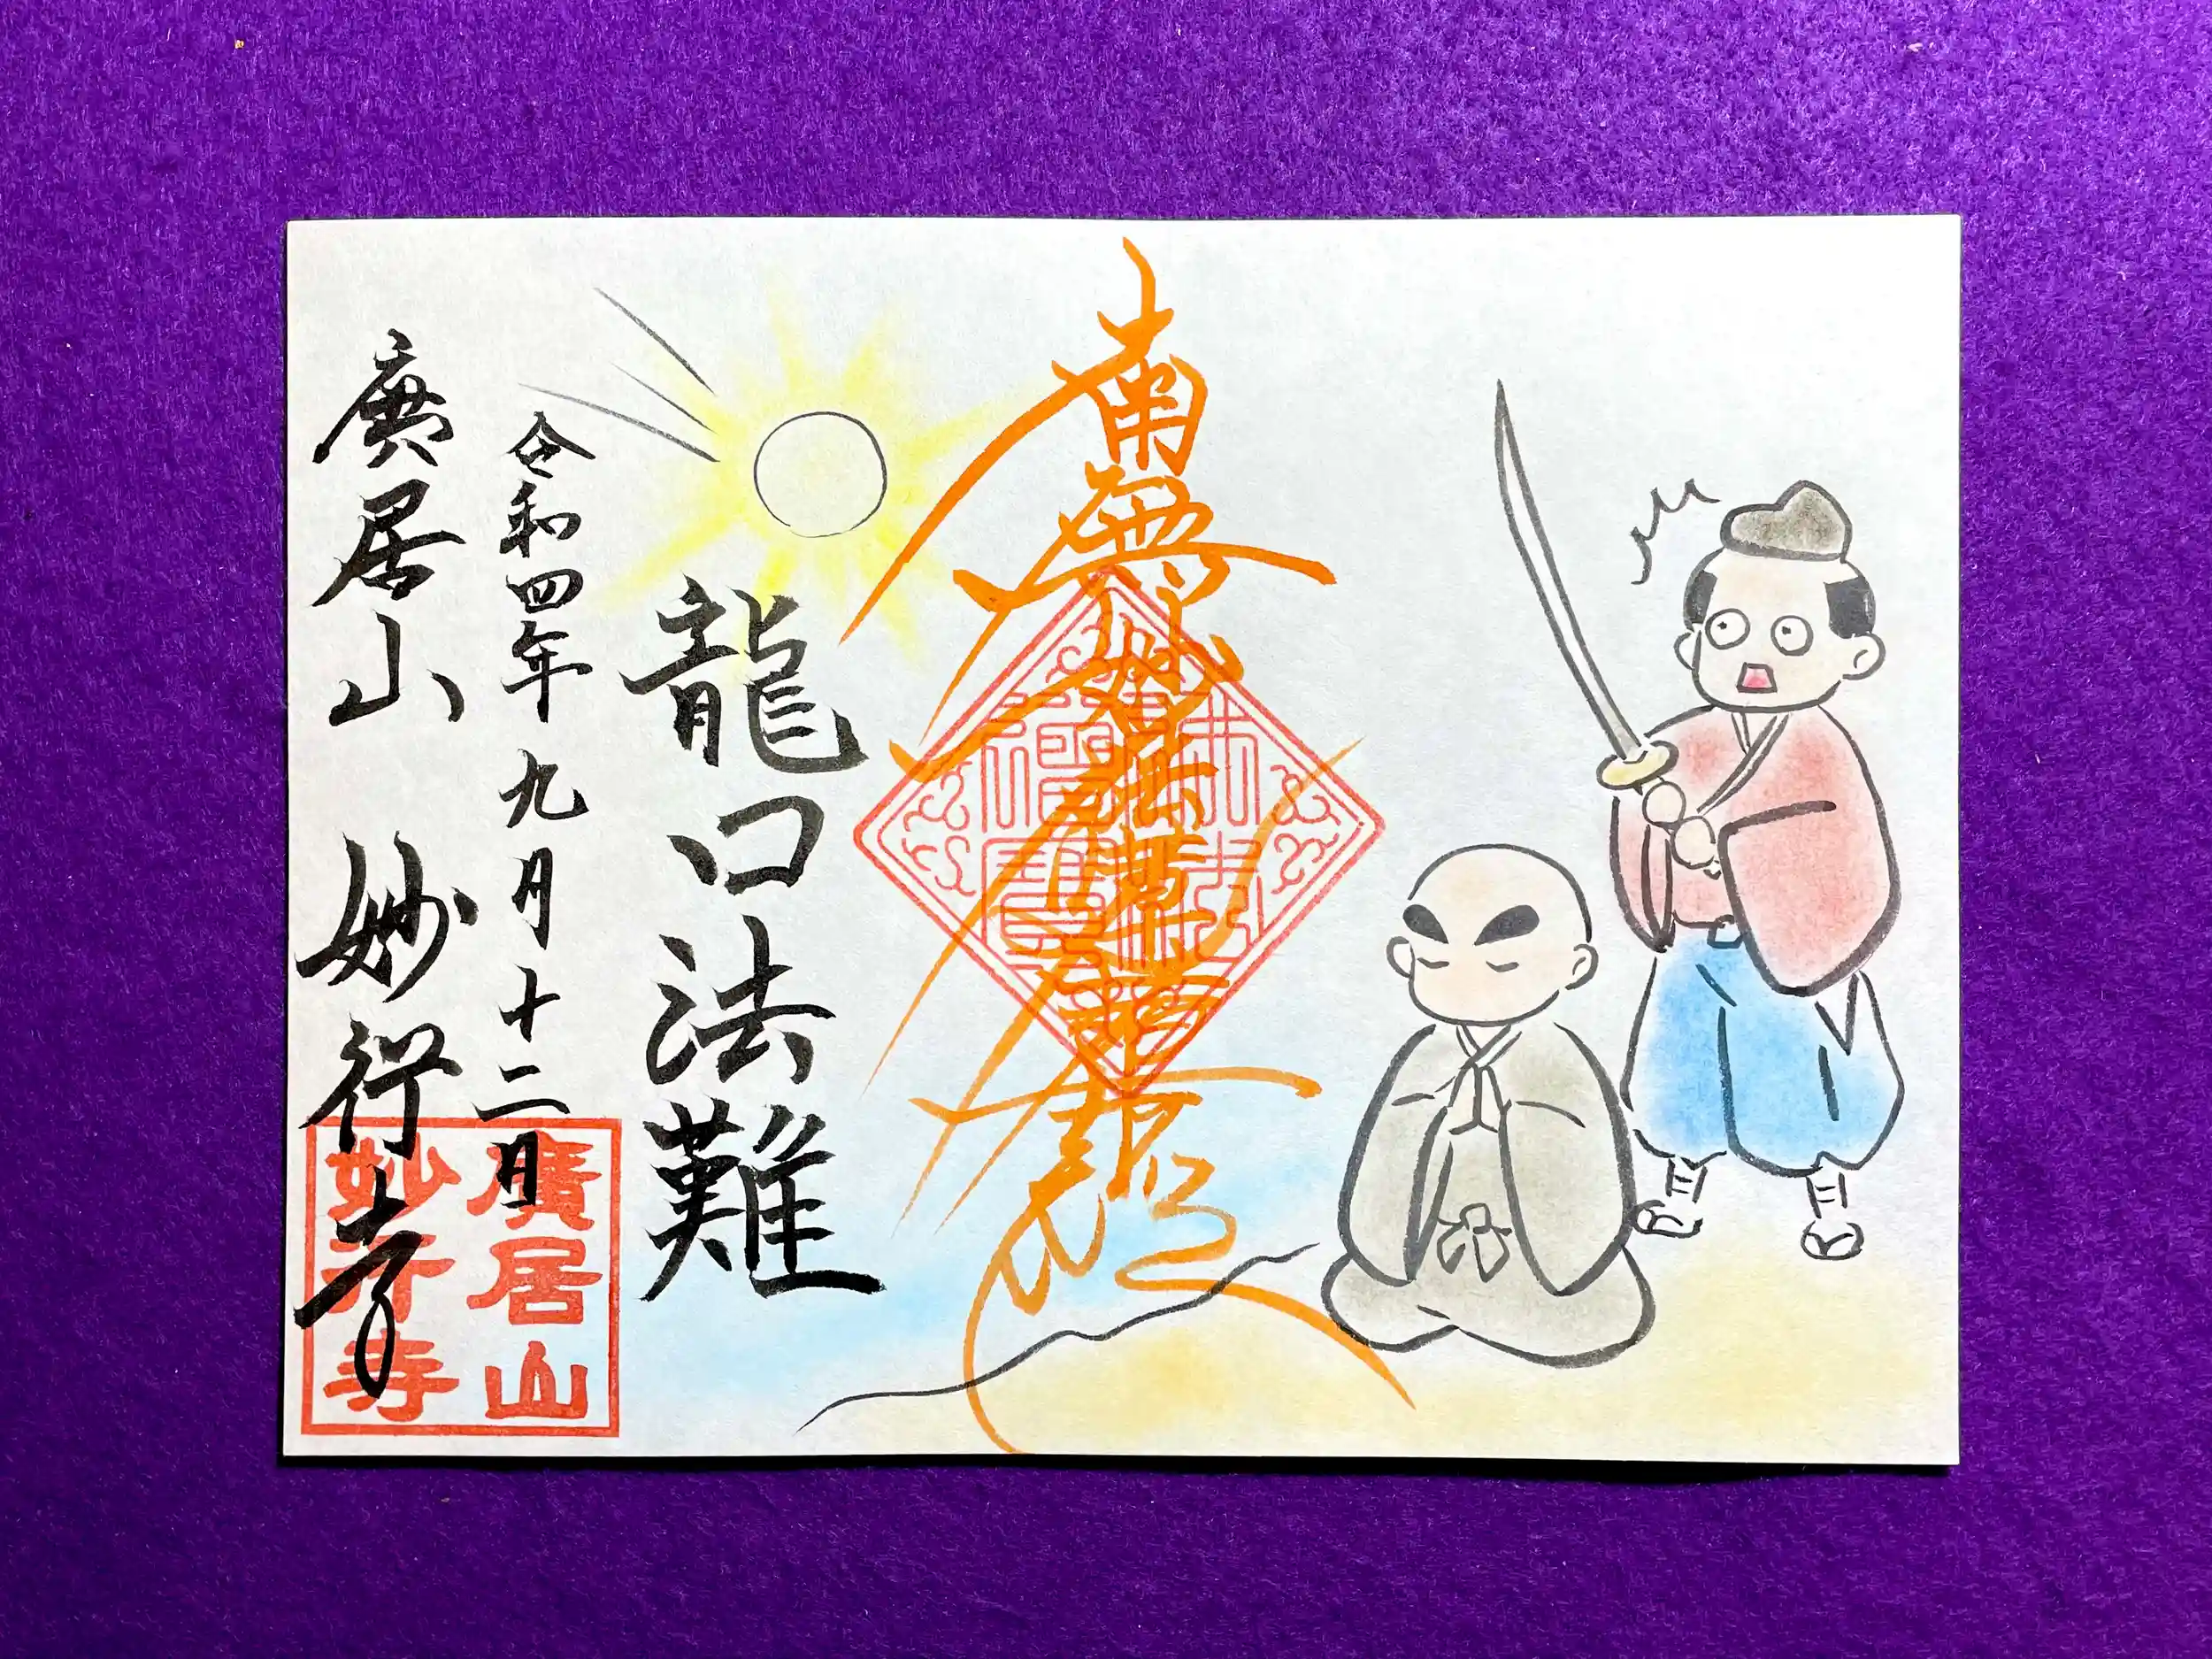 南無妙法蓮華経
龍口法難
令和四年九月十二日
廣居山 妙行寺
廣居山
妙行寺